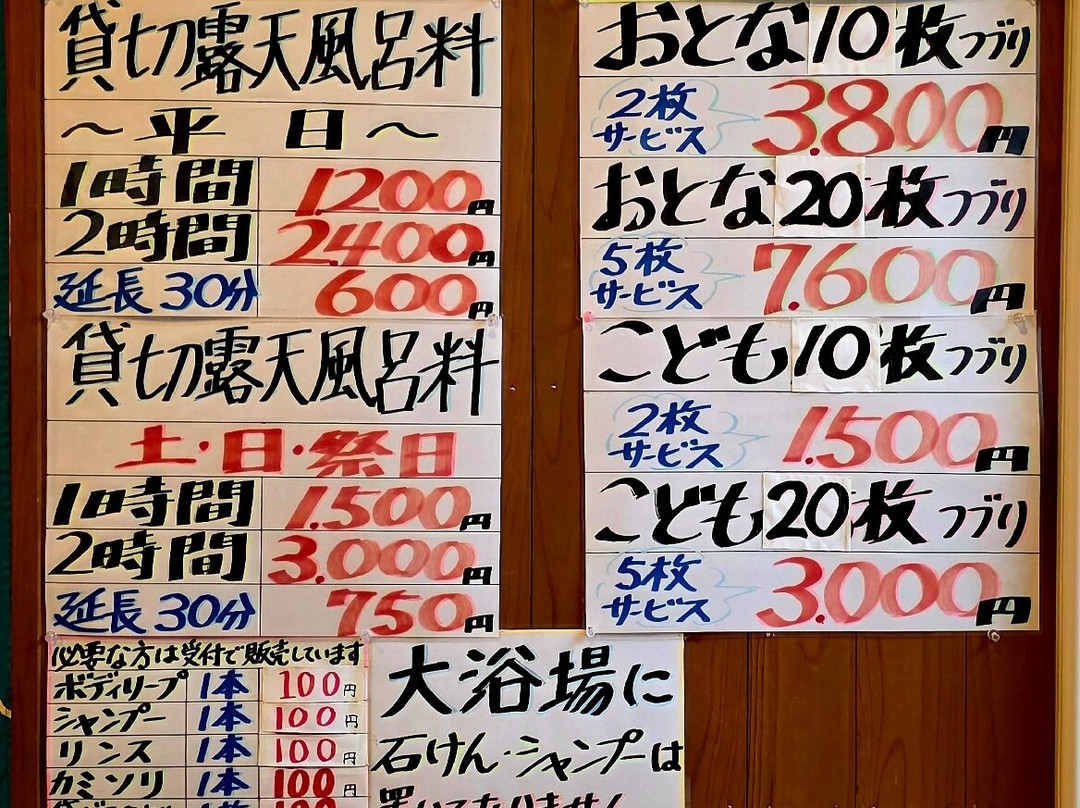 貸切露天風呂料
～平日～
1時間 1.200円
2時間 2.400円
延長30分 600円
貸切露天風呂料
土・日・祭日
1時間 1.500円
2時間 3.000円
延長30分 750円
必要な方は受付で販売しています
ボディソープ 1本 100円
シャンプー 1本 100円
リンス 1本 100円
カミソリ 1本 100円
大浴場に
石けん・シャンプーは
置いてありません
おとな10枚つづり
2枚
サービス 3.800円
おとな20枚つづり
5枚
サービス 7.600円
こども10枚つづり
2枚
サービス 1.500円
こども20枚つづり
5枚
サービス 3.000円